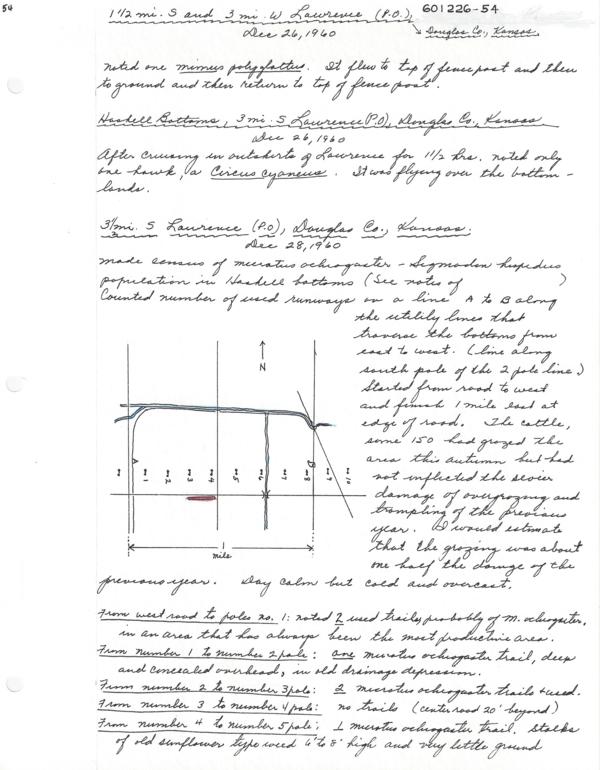 54
1 1/2 mi. S and 3 mi. W Lawrence (P.O.), 601226-54
Dec 26, 1960 → Douglas Co., Kansas.
noted one mimus polyglottus. It flew to top of fence post and then
to ground and then return to top of fence post.
Haskell Bottoms, 3 mi. S Lawrence (P.O), Douglas Co., Kansas
Dec 26, 1960
After cruising in outskirts of Lawrence for 1 1/2 hrs. noted only
one hawk, a Circus cyaneus. It was flying over the bottom-
lands.
mi. S Lawrence (P.O), Douglas Co., Kansas.
Dec 28, 1960
made census of microtus ochrogaster - Sigmodon hispidus
population in Haskell bottoms (See notes of )
Counted number of used runways on a line A to B along
the utility lines that
traverse the bottoms from
east to west. (line along
south pole of the 2 pole line.)
Started from road to west
and finish 1 mile east at
edge of road. The cattle,
some 150 had grazed the
area this autumn but had
not inflicted the sevier
damage of overgrazing and
trampling of the previous
year. I would estimate
that the grazing was about
one half the damage of the
previous year. Day calm but cold and overcast.
N
A
B
1
2
3
4
5
6
7
8
9
10
1
mile
From west road to poles no. 1: noted 2 used trails, probably of M. ochrogaster,
in an area that has always been the most productive area.
From number 1 to number 2 pole: one microtus ochrogaster trail, deep
and concealed overhead, in old drainage depression.
From number 2 to number 3 pole: 2 microtus ochrogaster trails + used.
From number 3 to number 4 pole: no trails (center road 20' beyond)
From number 4 to number 5 pole: 1 microtus ochrogaster trail. Stalks
of old sunflower type weed 6' to 8' high and very little ground